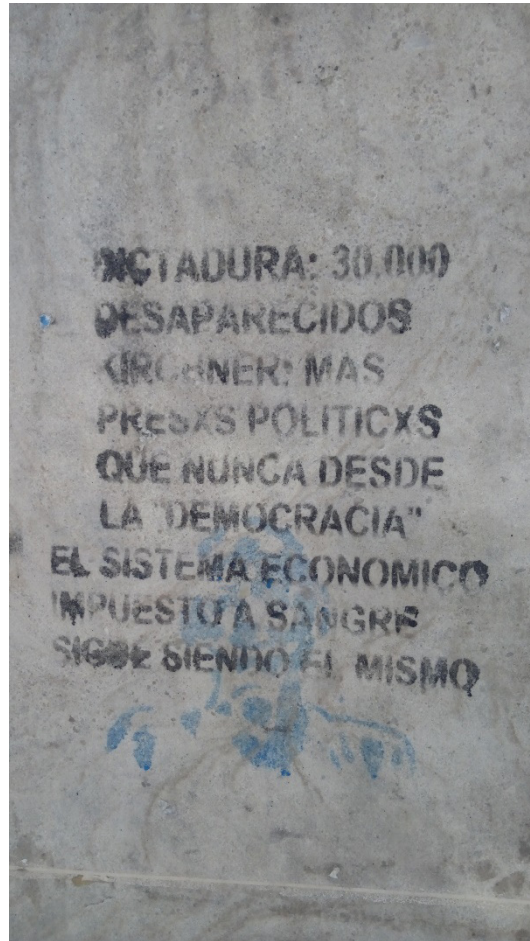 DICTADURA: 30.000
DESAPARECIDOS
KIRCHNER: MAS
PRESXS POLITICXS
QUE NUNCA DESDE
LA "DEMOCRACIA"
EL SISTEMA ECONOMICO
IMPUESTO A SANGRE
SIGUE SIENDO EL MISMO